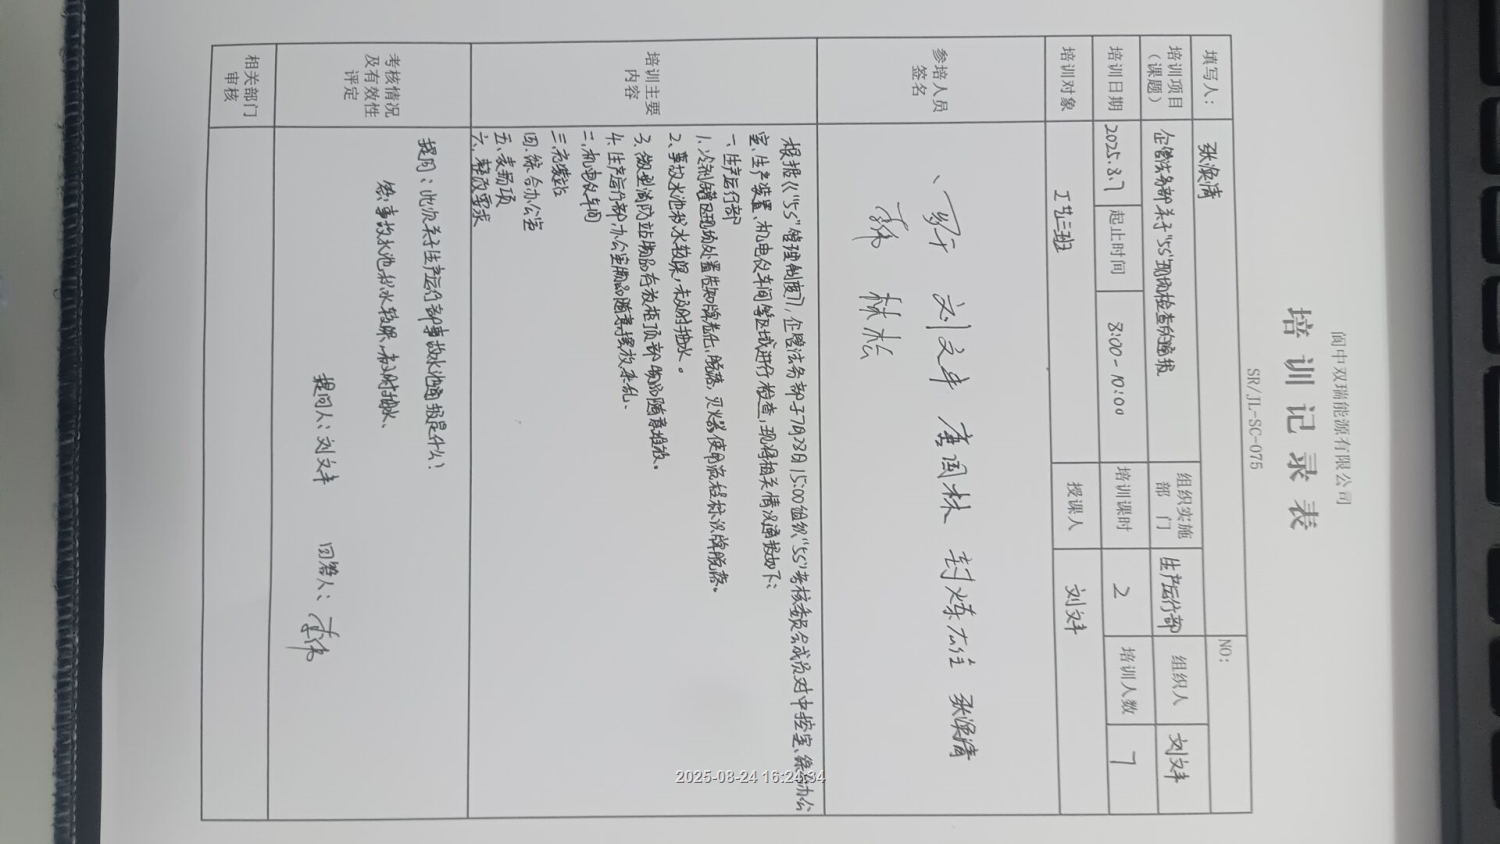 阆中双瑞能源有限公司
培训记录表
SR/JL-SC-075
NO:
填写人: 张泳清
培训项目（课题） 企管法务部关于"5S"现场检查的通报 组织实施部门 生产运行部 组织人 刘文丰
培训日期 2025.8.7 起止时间 8:00-10:00 培训课时 2 培训人数 7
培训对象 工艺三班 授课人 刘文丰
参培人员签名
刘文丰 唐国林 张泳清
林松
培训主要内容
根据《"5S"管理制度》,企管法务部于7月28日15:00组织"5S"考核委员会成员对中控室、综合办公
室、生产装置、机电仪车间等区域进行检查,现将相关情况通报如下:
一、生产运行部
1、冷剂罐区现场处置告知牌老化、脱落,灭火器使用流程标识牌脱落。
2、事故水池积水较深,未及时抽水。
3、微型消防站物品存放柜顶部物品随意堆放。
4、生产运行部办公室物品随意摆放杂乱、
二、机电仪车间
三、充装站
四、综合办公室
五、表扬项
六、整改要求
考核情况及有效性评定
提问:此次关于生产运行部事故水池通报是什么?
答:事故水池积水较深,未及时抽水、
提问人: 刘文丰 回答人: 李伟
相关部门审核
2025-08-24 16:24:34